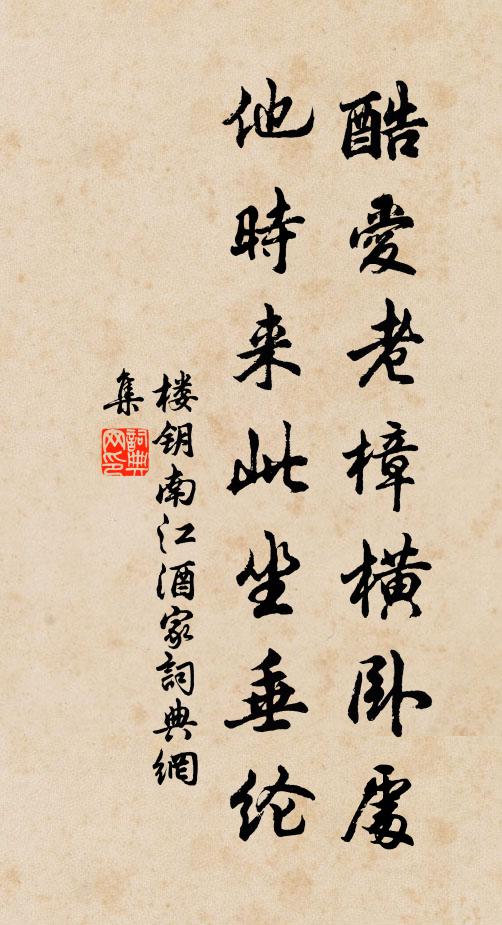 酷愛老樟橫卧處
他時来此坐垂纶
楼钥南江酒家詞典網
集
詞典网印